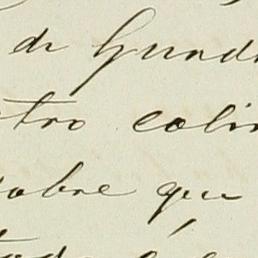 de Gund
tro colin
sobre que